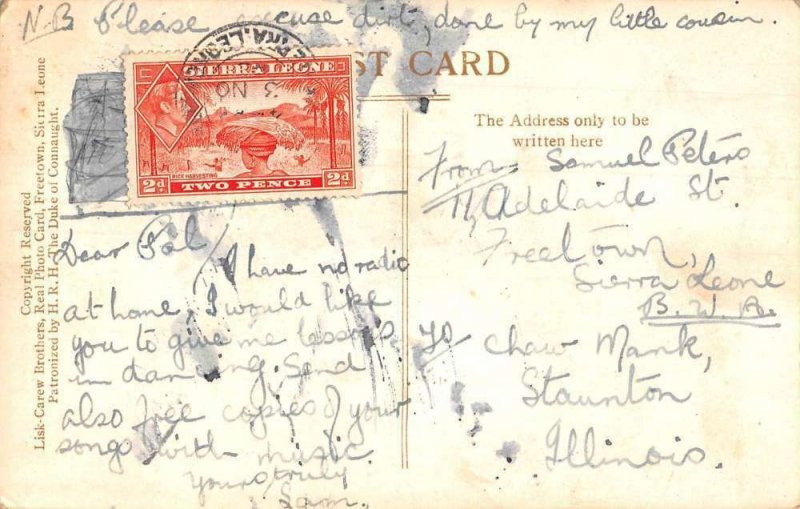 N.B Please excuse dirt, done by my little cousin.
POST CARD
SIERRA LEONE
RICE HARVESTING
2d. TWO PENCE 2d.
3 NO
Copyright Reserved
Lisk-Carew Brothers, Real Photo Card, Freetown, Sierra Leone
Patronized by H.R.H. The Duke of Connaught.
Dear Pal
I have no radio
at home, I would like
you to give me lessons
in dancing. Send
also free copies of your
songs with music.
Yours truly
Sam.
The Address only to be
written here
From Samuel Peters
11, Adelaide St.
Freetown,
Sierra Leone
B.W.A.
To Chaw Mank,
Staunton
Illinois.